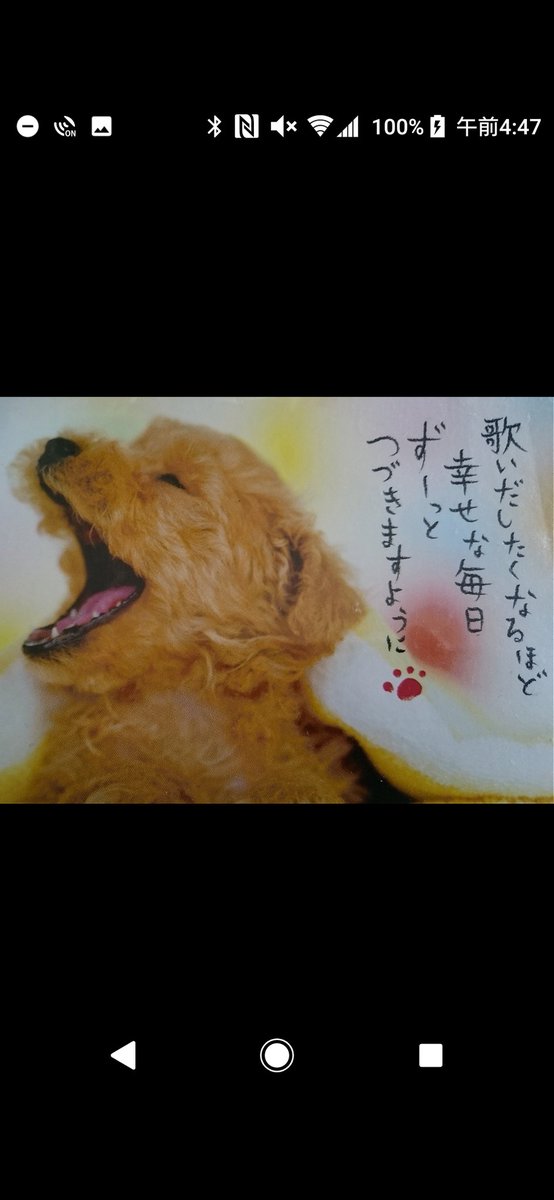 100% 午前4:47
ON
歌いだしたくなるほど
幸せな毎日
ずーっと
つづきますように